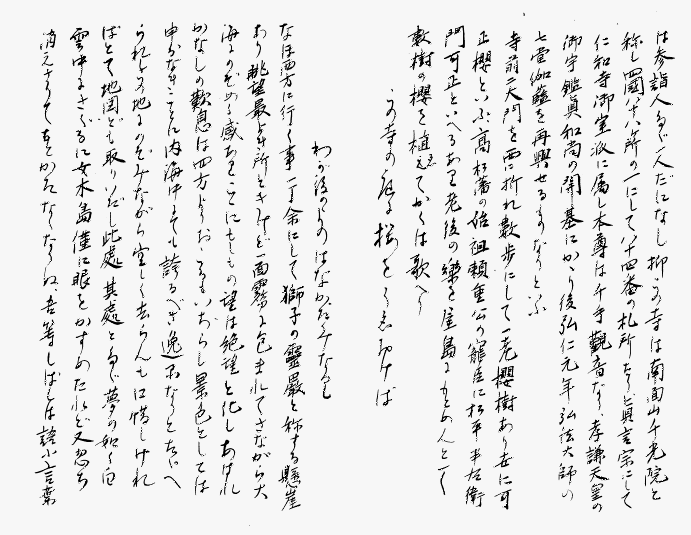 は参詣人とて一人だになし抑〻寺は南面山千光院と
称し四國八十八所の一にして八十四番の札所たり眞言宗にして
仁和寺御室派に属し本尊は千手觀音なり、孝謙天皇の
御宇鑑眞和尚の開基にかゝり後弘仁元年弘法大師の
七堂伽藍を再興せるものなりと云ふ
寺前二天門を西に折れ數歩にして一老櫻樹あり世に可
正櫻といふ高松藩の始祖頼重公の寵臣に松平半左衛
門可正といへるあり老後の樂を屋島にもとめんとて
數樹の櫻を植えてかくは歌へり
寺の庭に櫻をうゑおけば
わが後の世のはなかたみなる
なほ西方に行く事一丁余にして獅子の靈巖と称する懸崖
あり眺望最よき所ときゝみど一面霧に包まれてさながら大
海にのぞめる感あることにもの望は絶望と化しあはれ
かなしの歎息は四方よりおこるもいぢらし景色としては
申分なきことに内海中にても誇るべき逸 なりとたゝへ
られし此地にのぞみながら空しく去らんも口惜しければ
ばとて地図ども取りいだし此處其處と 夢の如く白
雲中にさぐるに女木島僅に眼をかすめたれど又忽ち
消えさりてまたかたなくなりぬ、吾等しばしは語る言葉